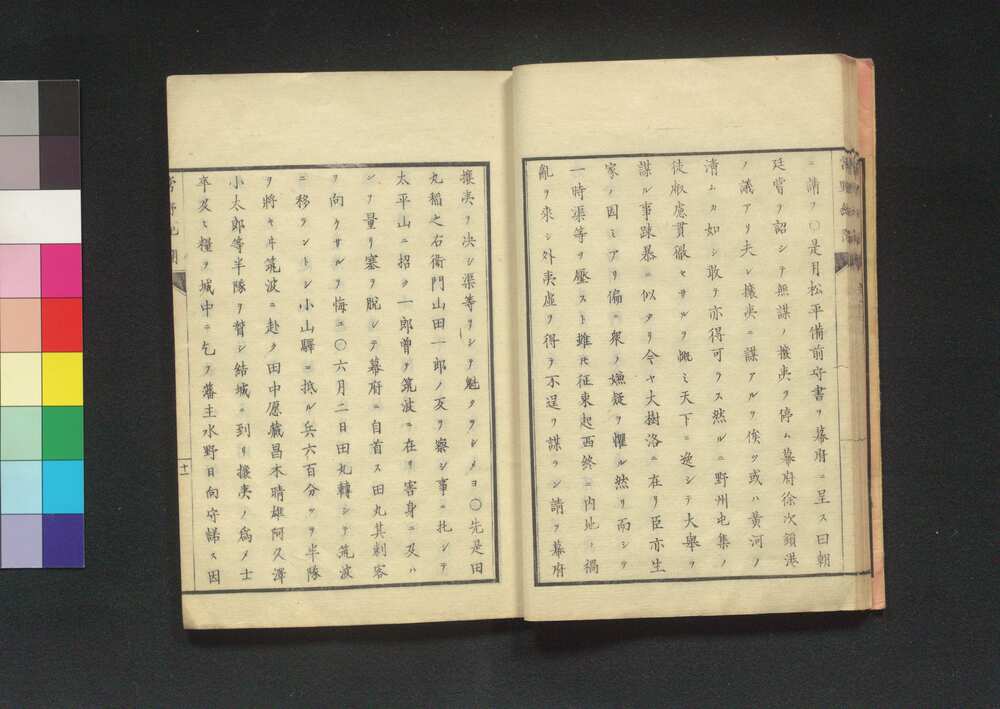 ニ請フ〇是月松平備前守書ヲ幕府ニ呈ス曰朝
廷嘗ヲ詔シテ無謀ノ攘夷ヲ停ム幕府徐次鎖港
ノ議アリ夫レ攘夷ニ謀アルヲ俟ツ或ハ黄河ノ
清ムカ如シ敢テ亦得可ラス然ルニ野州屯集ノ
徒叡慮貫徹セサルヲ慨ミ天下ニ逸シテ大擧ヲ
謀ル事疎暴ニ似タリ今ヤ大樹洛ニ在リ臣亦生
家ノ因ミアリ偏ニ衆ノ嫌疑ヲ懼ル然リ而シテ
一時渠等ヲ壓スト雖𪜈征東起西終ニ内地ノ禍
亂ヲ來シ外夷虚ヲ得テ不逞ヲ謀ラン請フ幕府
攘夷ヲ決シ渠等ヲシテ魁タラシメヨ〇先是田
丸稻之右衛門山田一郎ノ反ヲ察シ事ニ托シテ
太平山ニ招ク一郎曽テ筑波ニ在リ害身ニ及ハ
ンヲ量リ塞ヲ脱シテ幕府ニ自首ス田丸其刺客
ヲ向ケサルヲ悔ユ〇六月二日田丸轉シテ筑波
ニ移ラントシ小山驛ニ抵ル兵六百分ツテ半隊
ヲ將ヰ筑波ニ赴ク田中愿藏昌木晴雄阿久澤
小太郎等半隊ヲ督シ結城ニ到リ攘夷ノ爲メ士
卒及ヒ糧ヲ城中ニ乞フ藩主水野日向守諾ス因
十一